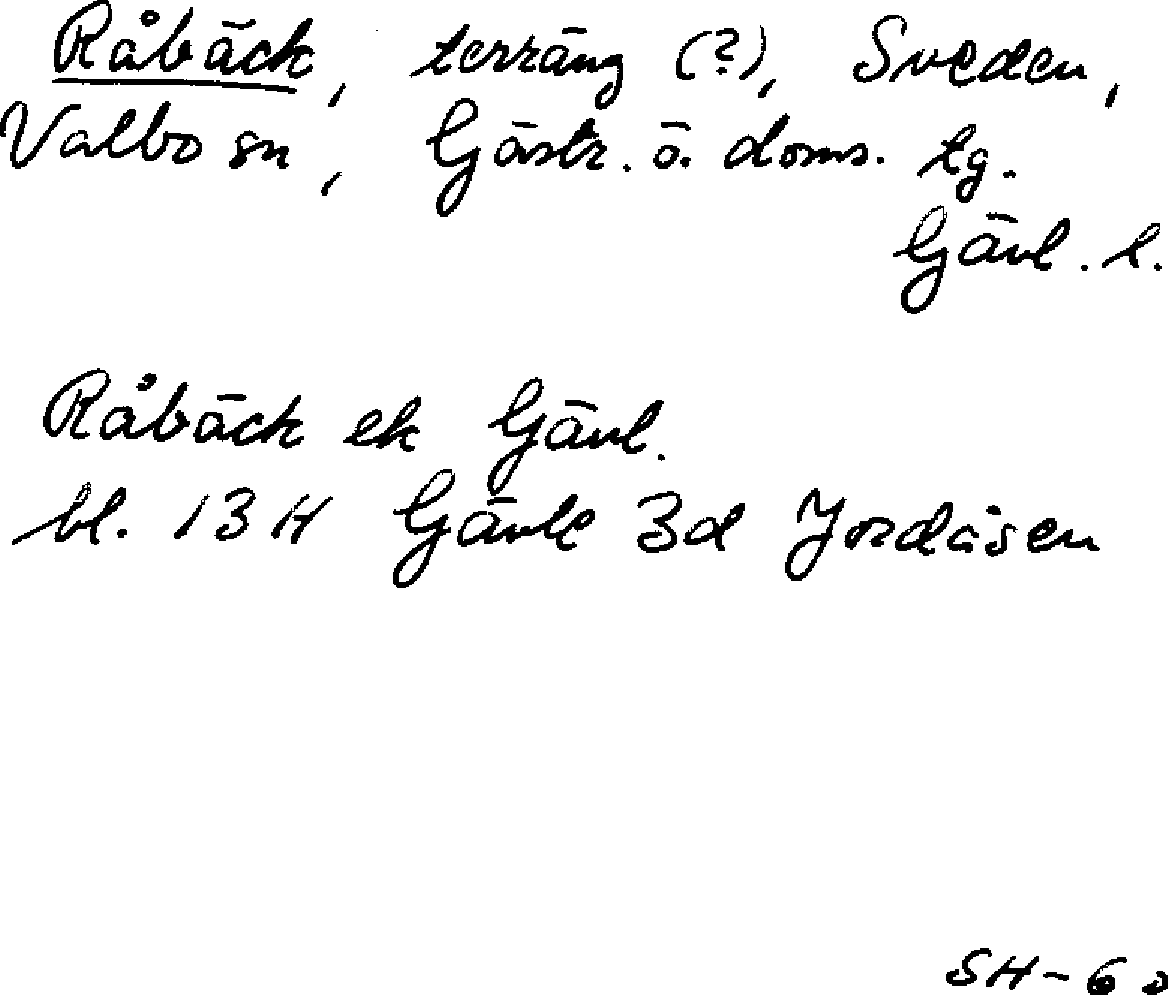 Råbäck, terräng (?), Sveden,
Valbo sn, Gästr. ö. doms. tg.
Gävl. l.
Råbäck ek Gävl.
bl. 13H Gävle 3d Jordåsen
SH-60